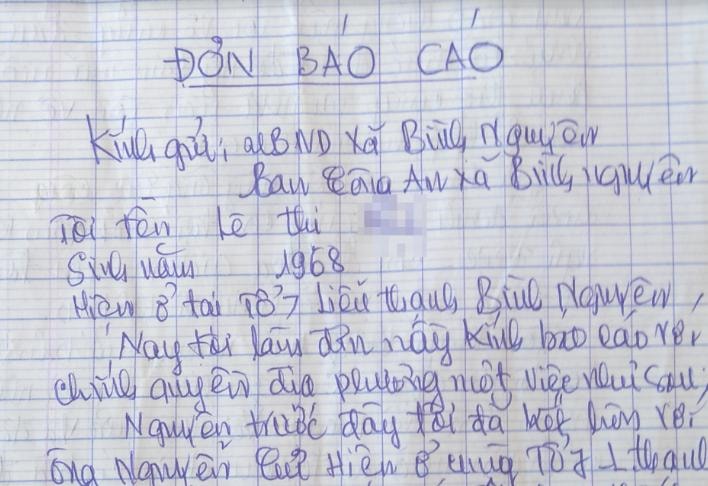 ĐƠN BÁO CÁO
Kính gửi: UBND Xã Bình Nguyên
Ban Công An xã Bình nguyên
Tôi tên Lê thị
Sinh năm 1968
Hiện ở tại Tổ 7 Liễu thạnh Bình Nguyên,
Nay tôi làm đơn này Kính báo cáo với
chính quyền địa phương một việc như sau;
Nguyên trước đây tôi đã kết hôn với
ông Nguyễn Hiện ở cùng Tổ 7 L thạnh